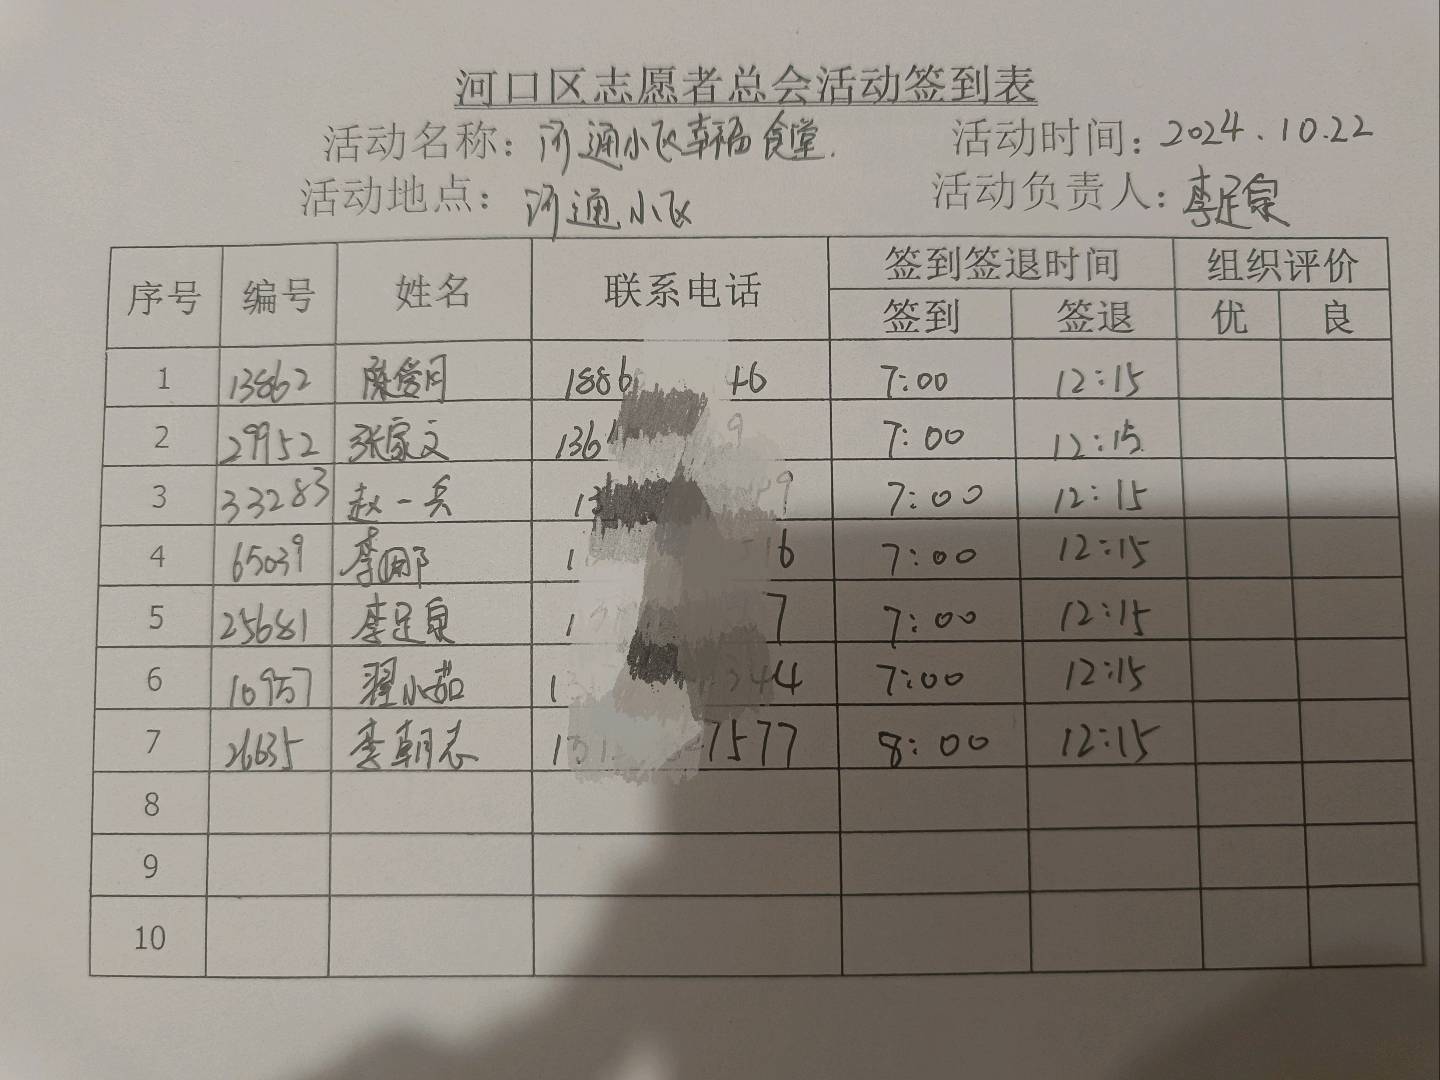 河口区志愿者总会活动签到表
活动名称：河通小区幸福食堂. 活动时间：2024.10.22
活动地点：河通小区 活动负责人：李足泉
序号 编号 姓名 联系电话 签到签退时间 组织评价
签到 签退 优 良
1 13862 1886 46 7:00 12:15
2 29952 张家文 136 9 7:00 12:15
3 33283 赵一兵 13 9 7:00 12:15
4 65039 李娜 1 16 7:00 12:15
5 25681 李足泉 1 7 7:00 12:15
6 10957 翟小茹 1 344 7:00 12:15
7 26635 李朝志 131 7577 8:00 12:15
8
9
10